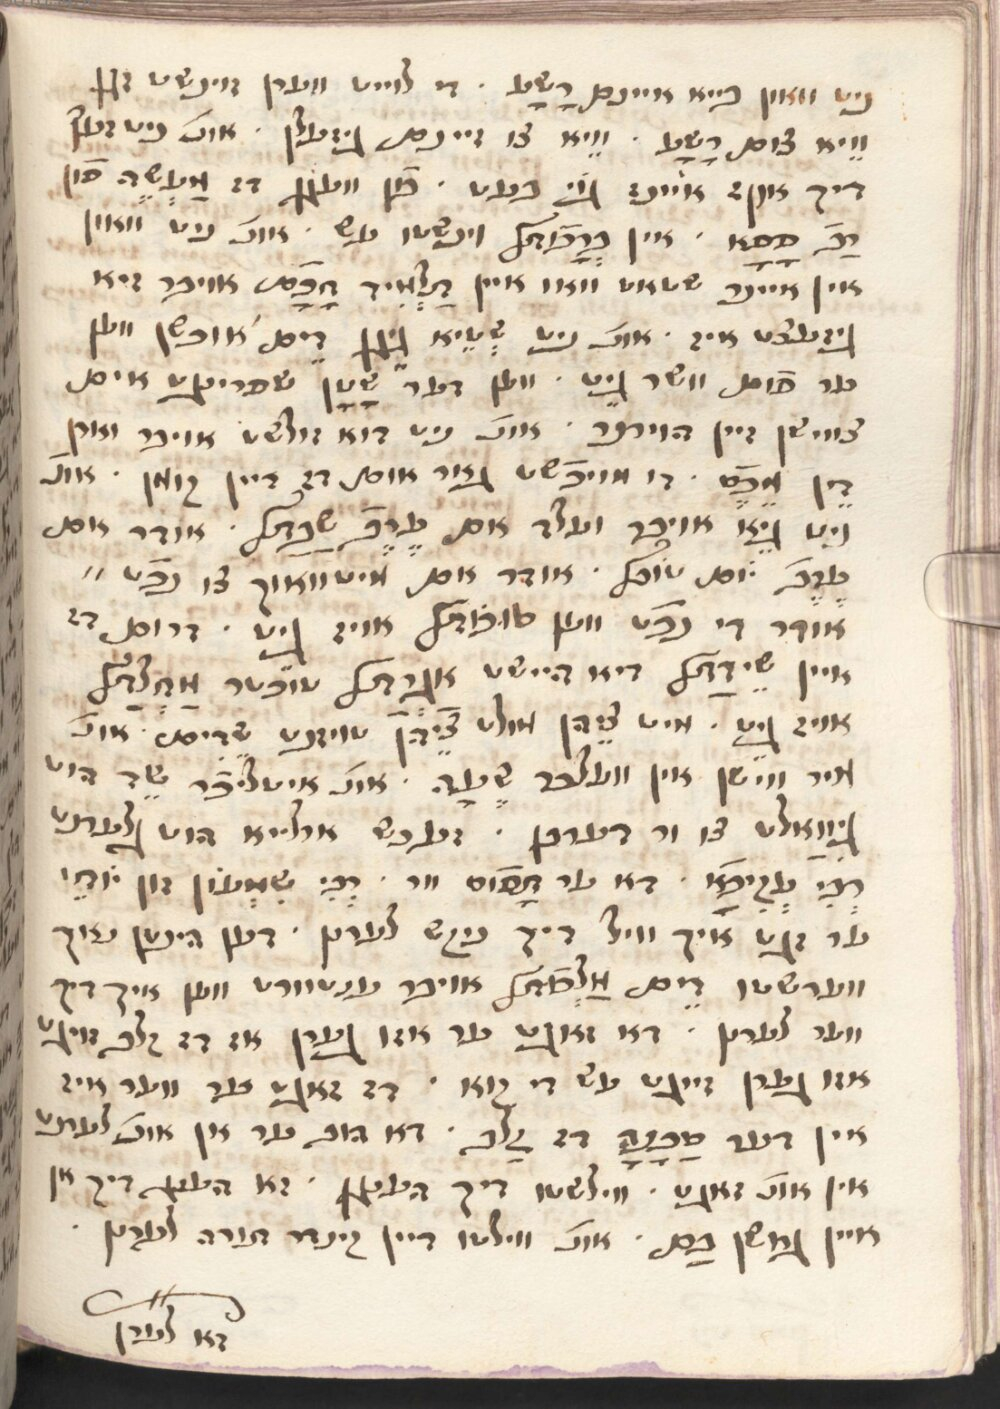 ניט וואון בייא איינם רָשָע . די לוייט ווערן זוינשט זגן
וֵויא צום רָשָע . וֵויא צו זיינם גיזעלן . אונ ניט זעצן
דיך אויף איינז בעט . פון וועגן דז מַעֲשֶה פון
רַב פָּפָּא . אין בְּרָכוֹת וינשטו עש . אונ ניט וואון
אין איינר שטאט וואו איין תַּלְמִיד חָכָם אויבר זיא
גיזעצט איז . אונ ניט שְטֵיא גֵיגן דֵים אוכשן ווען
ער פום וושר גֵיט . ווען דער שָטָן שפרינגט אים
צווישן זיין הוירנר . אונ ניט דוא זולשט אויבר
אונ
ניט גֵיא אויבר וועלד אם עֶרֶב שַבָּת . אודר אם
עֶרֶב יום טוב . אודר אם מיטוואוך צו נכט
אודר די נכט ווען שַבָּת אויז גֵיט . דרום דז
איין שֵידָה דיא היישט אַגְרַת טוכטר מַחֲלַת
אויז גֵיט . מיט צֵיהן מולט צֵיהן טויזנט שֵדִים . אונ
מיר ווישן אין וועלכר שָעָה . אונ איטליכר שֵד הוט
גיוואלט צו ור דערבן . זעכש ארלייא הוט גלערנט
רַבִּי עֲקִיבָא . דא ער תָּפוּס וור . רַבִּי שִמְעוֹן בן יוֹחַי
ער זגט איך וויל דיך ניקש לערנן . דען הינטן נאוך
ווערשטו דֵים מַלְכוּת אויבר ענטוורט ווען איך דיך
ווער לערנן . דא זאגט ער אזו גערן אז דז קלב זויגט
אזו גערן זייגט עש די קוא . דז זאגט ער ווער איז
אין דער סַכָּנָה דז קַלב . דא הוב ער אן אונ לערנט
אין אונ זאגט . ווילשטו דיך העֶנגן . זא הענג דיך אן
איין גרושן בַּם . אונ ווילטו דיין קינדר תורה לערנן .
זא לערנן